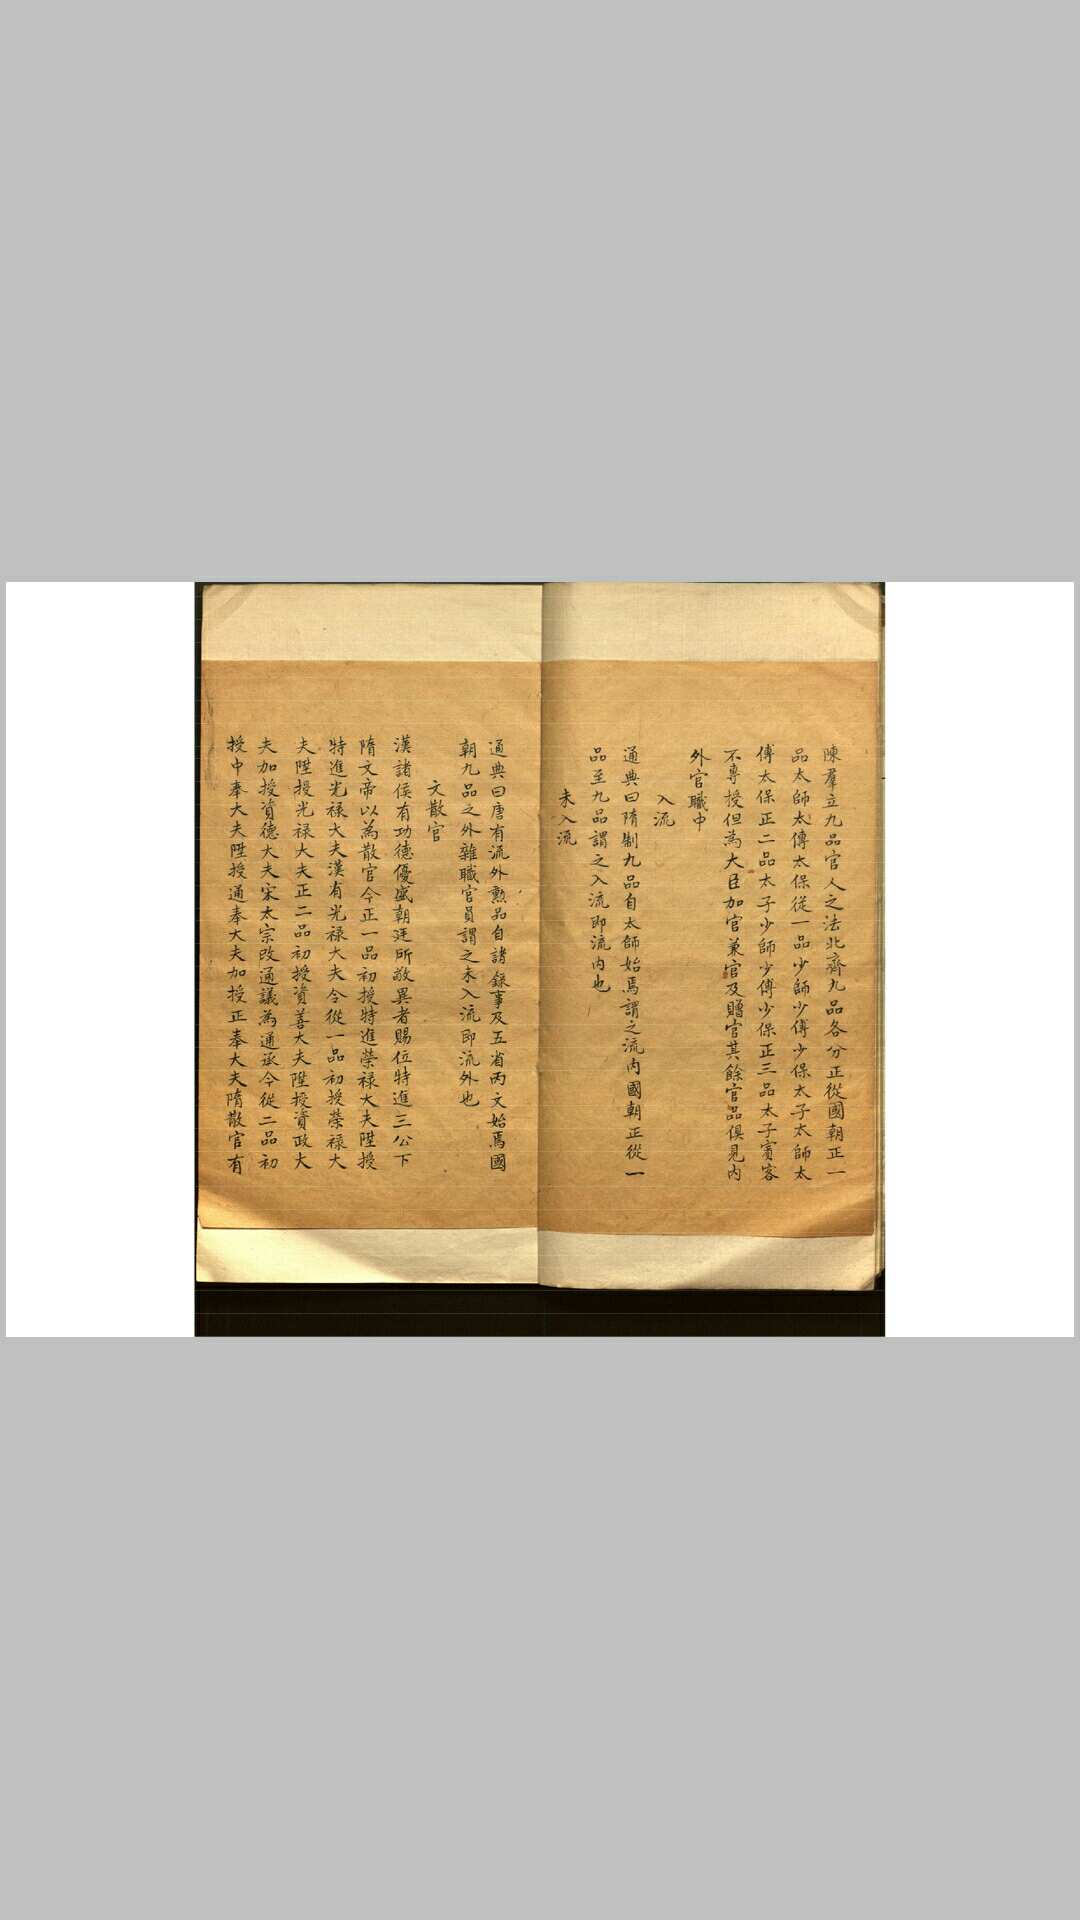 陳羣立九品官人之法北齊九品各分正從國朝正一
品太師太傅太保從一品少師少傅少保太子太師太
傅太保正二品太子少師少傅少保正三品太子賓客
不專授但為大臣加官兼官及贈官其餘官品俱見內
外官職中
入流
通典曰隋制九品自太師始焉謂之流內國朝正從一
品至九品謂之入流即流內也
未入流
通典曰唐有流外勲品自諸錄事及五省丙文始焉國
朝九品之外雜職官員謂之未入流即流外也
文散官
漢諸侯有功德優盛朝廷所敬異者賜位特進三公下
隋文帝以為散官今正一品初授特進榮祿大夫陞授
特進光祿大夫漢有光祿大夫今從一品初授榮祿大
夫陞授光祿大夫正二品初授資善大夫陞授資政大
夫加授資德大夫宋太宗改通議為通承今從二品初
授中奉大夫陞授通奉大夫加授正奉大夫隋散官有